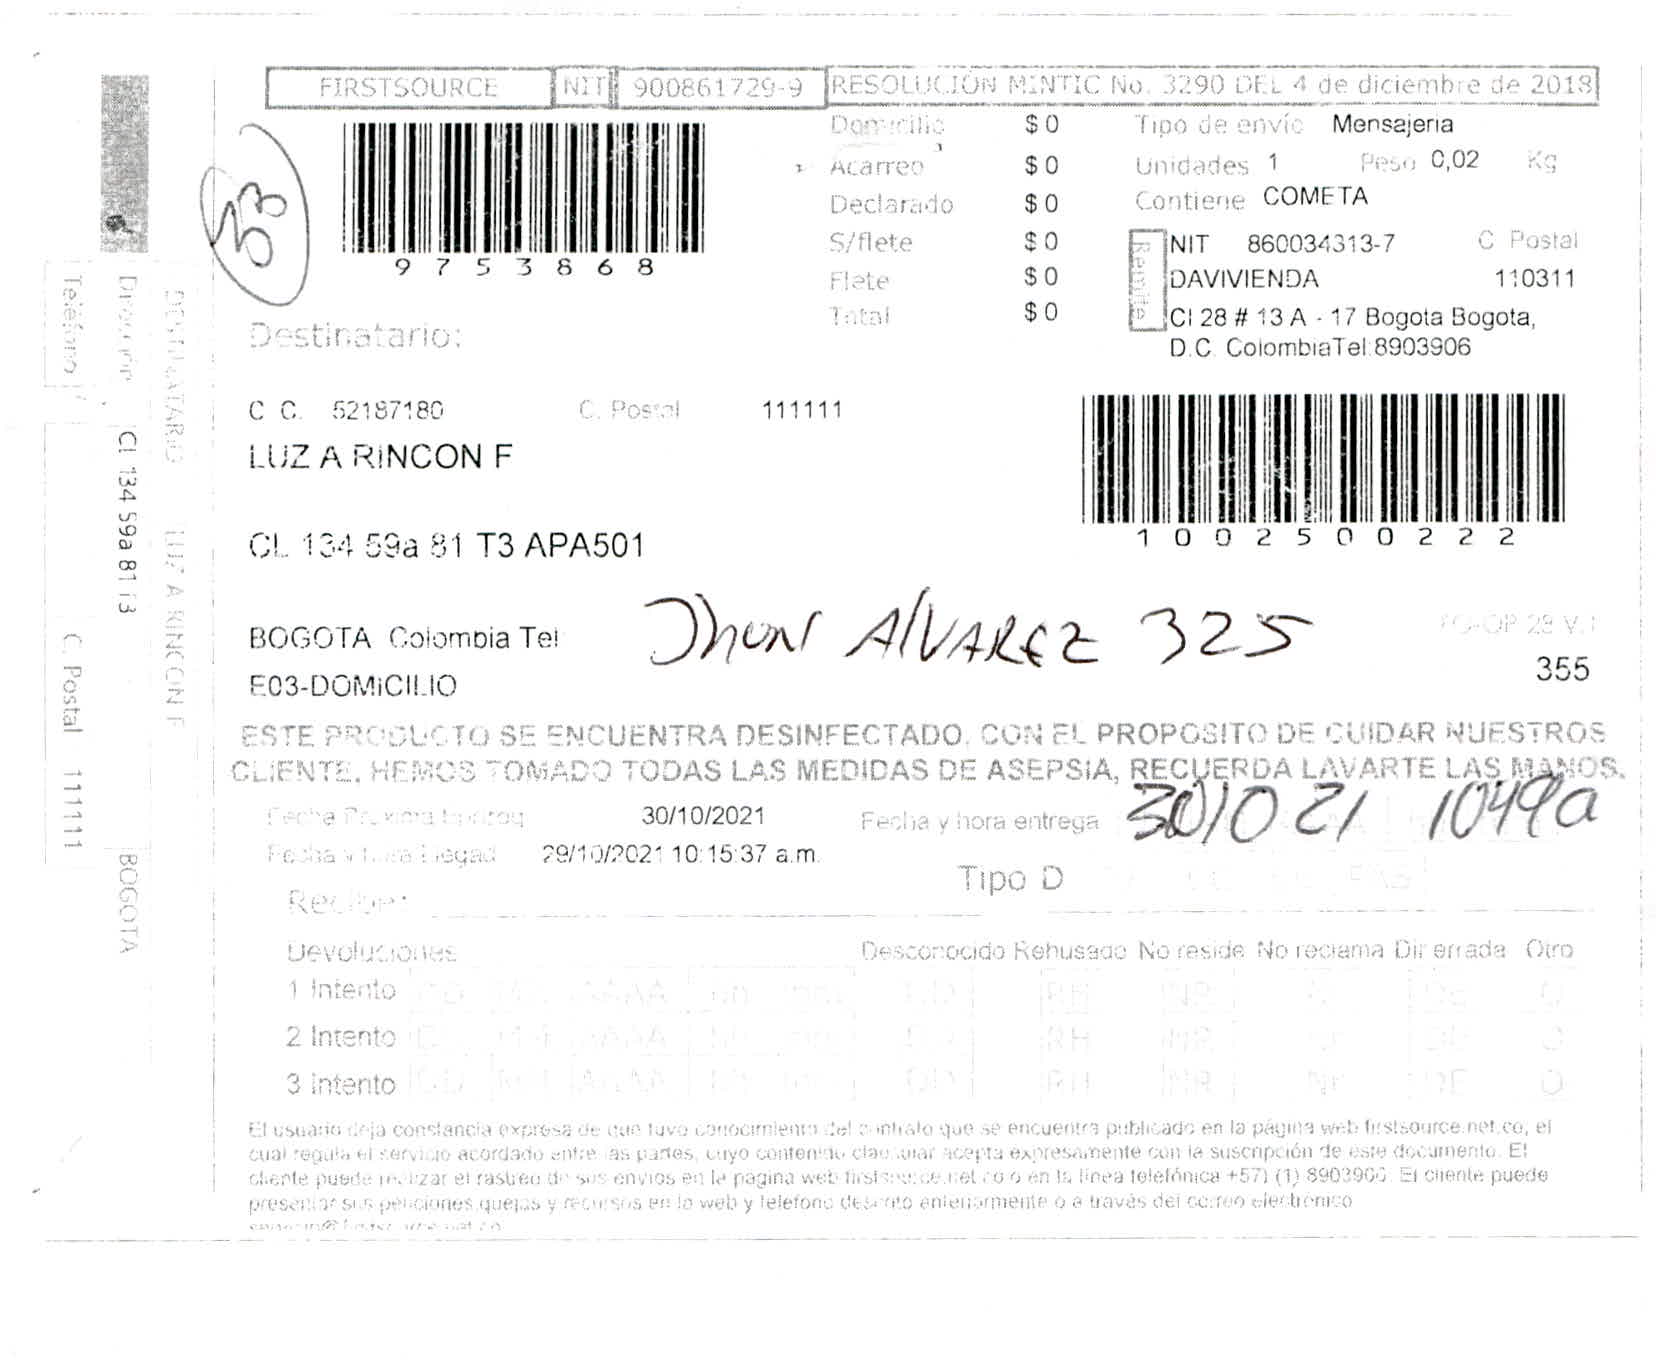 FIRSTSOURCE NIT 900861729-9 RESOLUCIÓN MINTIC No. 3290 DEL 4 de diciembre de 2018
53
9753868
Domicilio $ 0
Acarreo $ 0
Declarado $ 0
S/flete $ 0
Flete $ 0
Total $ 0
Tipo de envío Mensajeria
Unidades 1 Peso 0,02 Kg
Contiene COMETA
Remite
NIT 860034313-7 C Postal
DAVIVIENDA 110311
Cl 28 # 13 A - 17 Bogota Bogota,
D.C. ColombiaTel:8903906
Destinatario:
C C. 52187180 C. Postal 111111
LUZ A RINCON F
1002500222
CL 134 59a 81 T3 APA501
Jhon Alvarez 325
BOGOTA Colombia Tel
355
E03-DOMICILIO
ESTE PRODUCTO SE ENCUENTRA DESINFECTADO, CON EL PROPOSITO DE CUIDAR NUESTROS
CLIENTE, HEMOS TOMADO TODAS LAS MEDIDAS DE ASEPSIA, RECUERDA LAVARTE LAS MANOS.
30/10/2021
Fecha y hora entrega 301021 1049a
29/10/2021 10:15:37 a.m.
Tipo D
Devoluciones Desconocido Rehusado No reside No reclama Dir errada Otro
1 Intento AAAA RH NR O
2 Intento AAAA RH NR O
3 Intento DD AAAA RH NR O
El usuario deja constancia expresa de que tuvo conocimiento del contrato que se encuentra publicado en la página web firstsource.net.co, el
cual regula el servicio acordado entre las partes, cuyo contenido clausular acepta expresamente con la suscripción de este documento. El
cliente puede realizar el rastreo de sus envios en la pagina web firstsource.net.co o en la línea telefónica +57) (1) 8903906. El cliente puede
presentar sus peticiones quejas y recursos en la web y telefono descrito anteriormente o a través del correo electronico
DESTINATARIO LUZ A RINCON F
Dirección Cl 134 59a 81 T3 BOGOTA
Teléfono C. Postal 111111